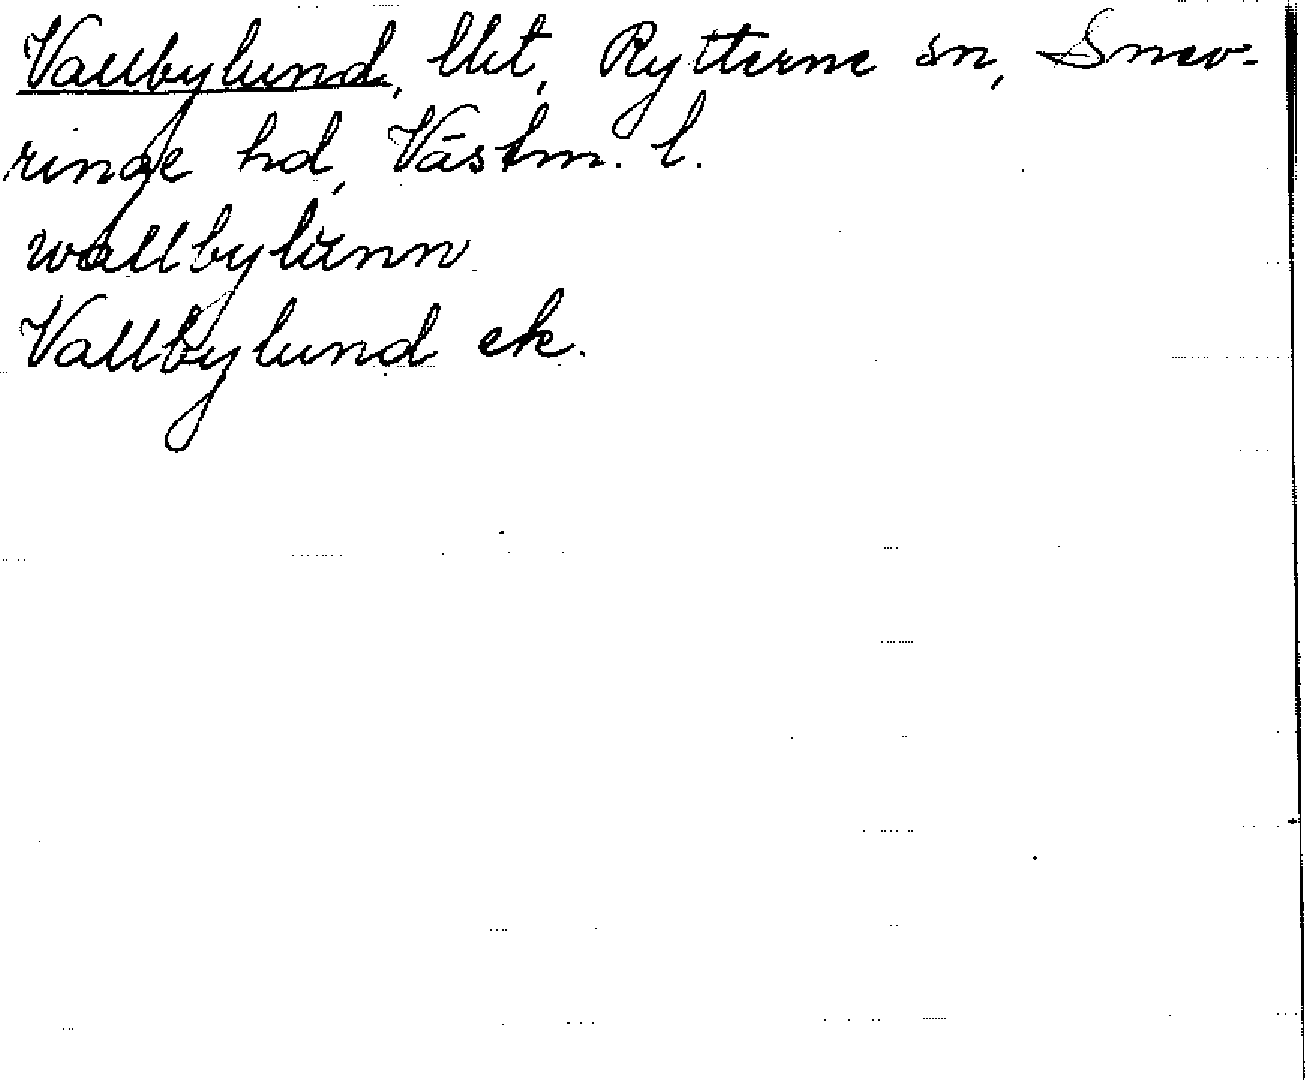 Vallbylund, lht, Rytterne sn, Snev-
ringe hd, Västm. l.
wallbylŭnn
Vallbylund ek.